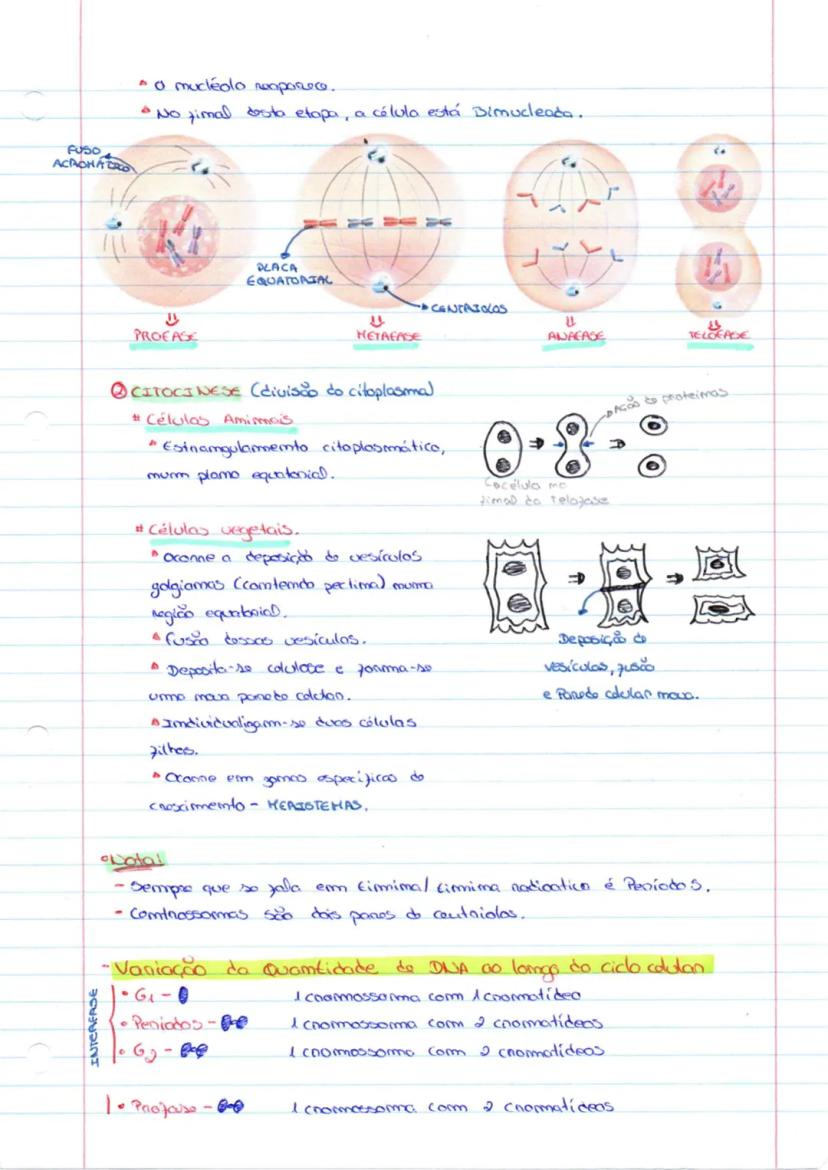 O nucléolo reaparece.
No final desta etapa, a célula está Binucleada.
FUSO
ACROMÁTICO
PLACA
EQUATORIAL
CENTRÍOLOS
PROFASE
METAFASE
ANAFASE
TELOFASE
② CITOCINESE (divisão do citoplasma)
# Células Animais
Estrangulamento citoplasmático,
num plano equatorial.
Ação de proteínas
célula no
final da Telofase
# Células vegetais.
Ocorre a deposição de vesículas
golgianas (contendo pectina) numa
região equatorial.
Fusão dessas vesículas.
Deposita-se celulose e forma-se
uma nova parede celular.
Individualizam-se duas células
filhas.
Ocorre em zonas específicas de
crescimento - MERISTEMAS.
Deposição de
vesículas, fusão
e Parede celular nova.
Nota!
- Sempre que se fala em timina/timina radioativa é Período S.
- Centrossomas são dois pares de centríolos.
- Variação da Quantidade de DNA ao longo do ciclo celular
INTERFASE
• G1 - 1 cromossoma com 1 cromatídeo
• Período S - 1 cromossoma com 2 cromatídeos
• G2 - 1 cromossoma com 2 cromatídeos
• Profase - 1 cromossoma com 2 cromatídeos